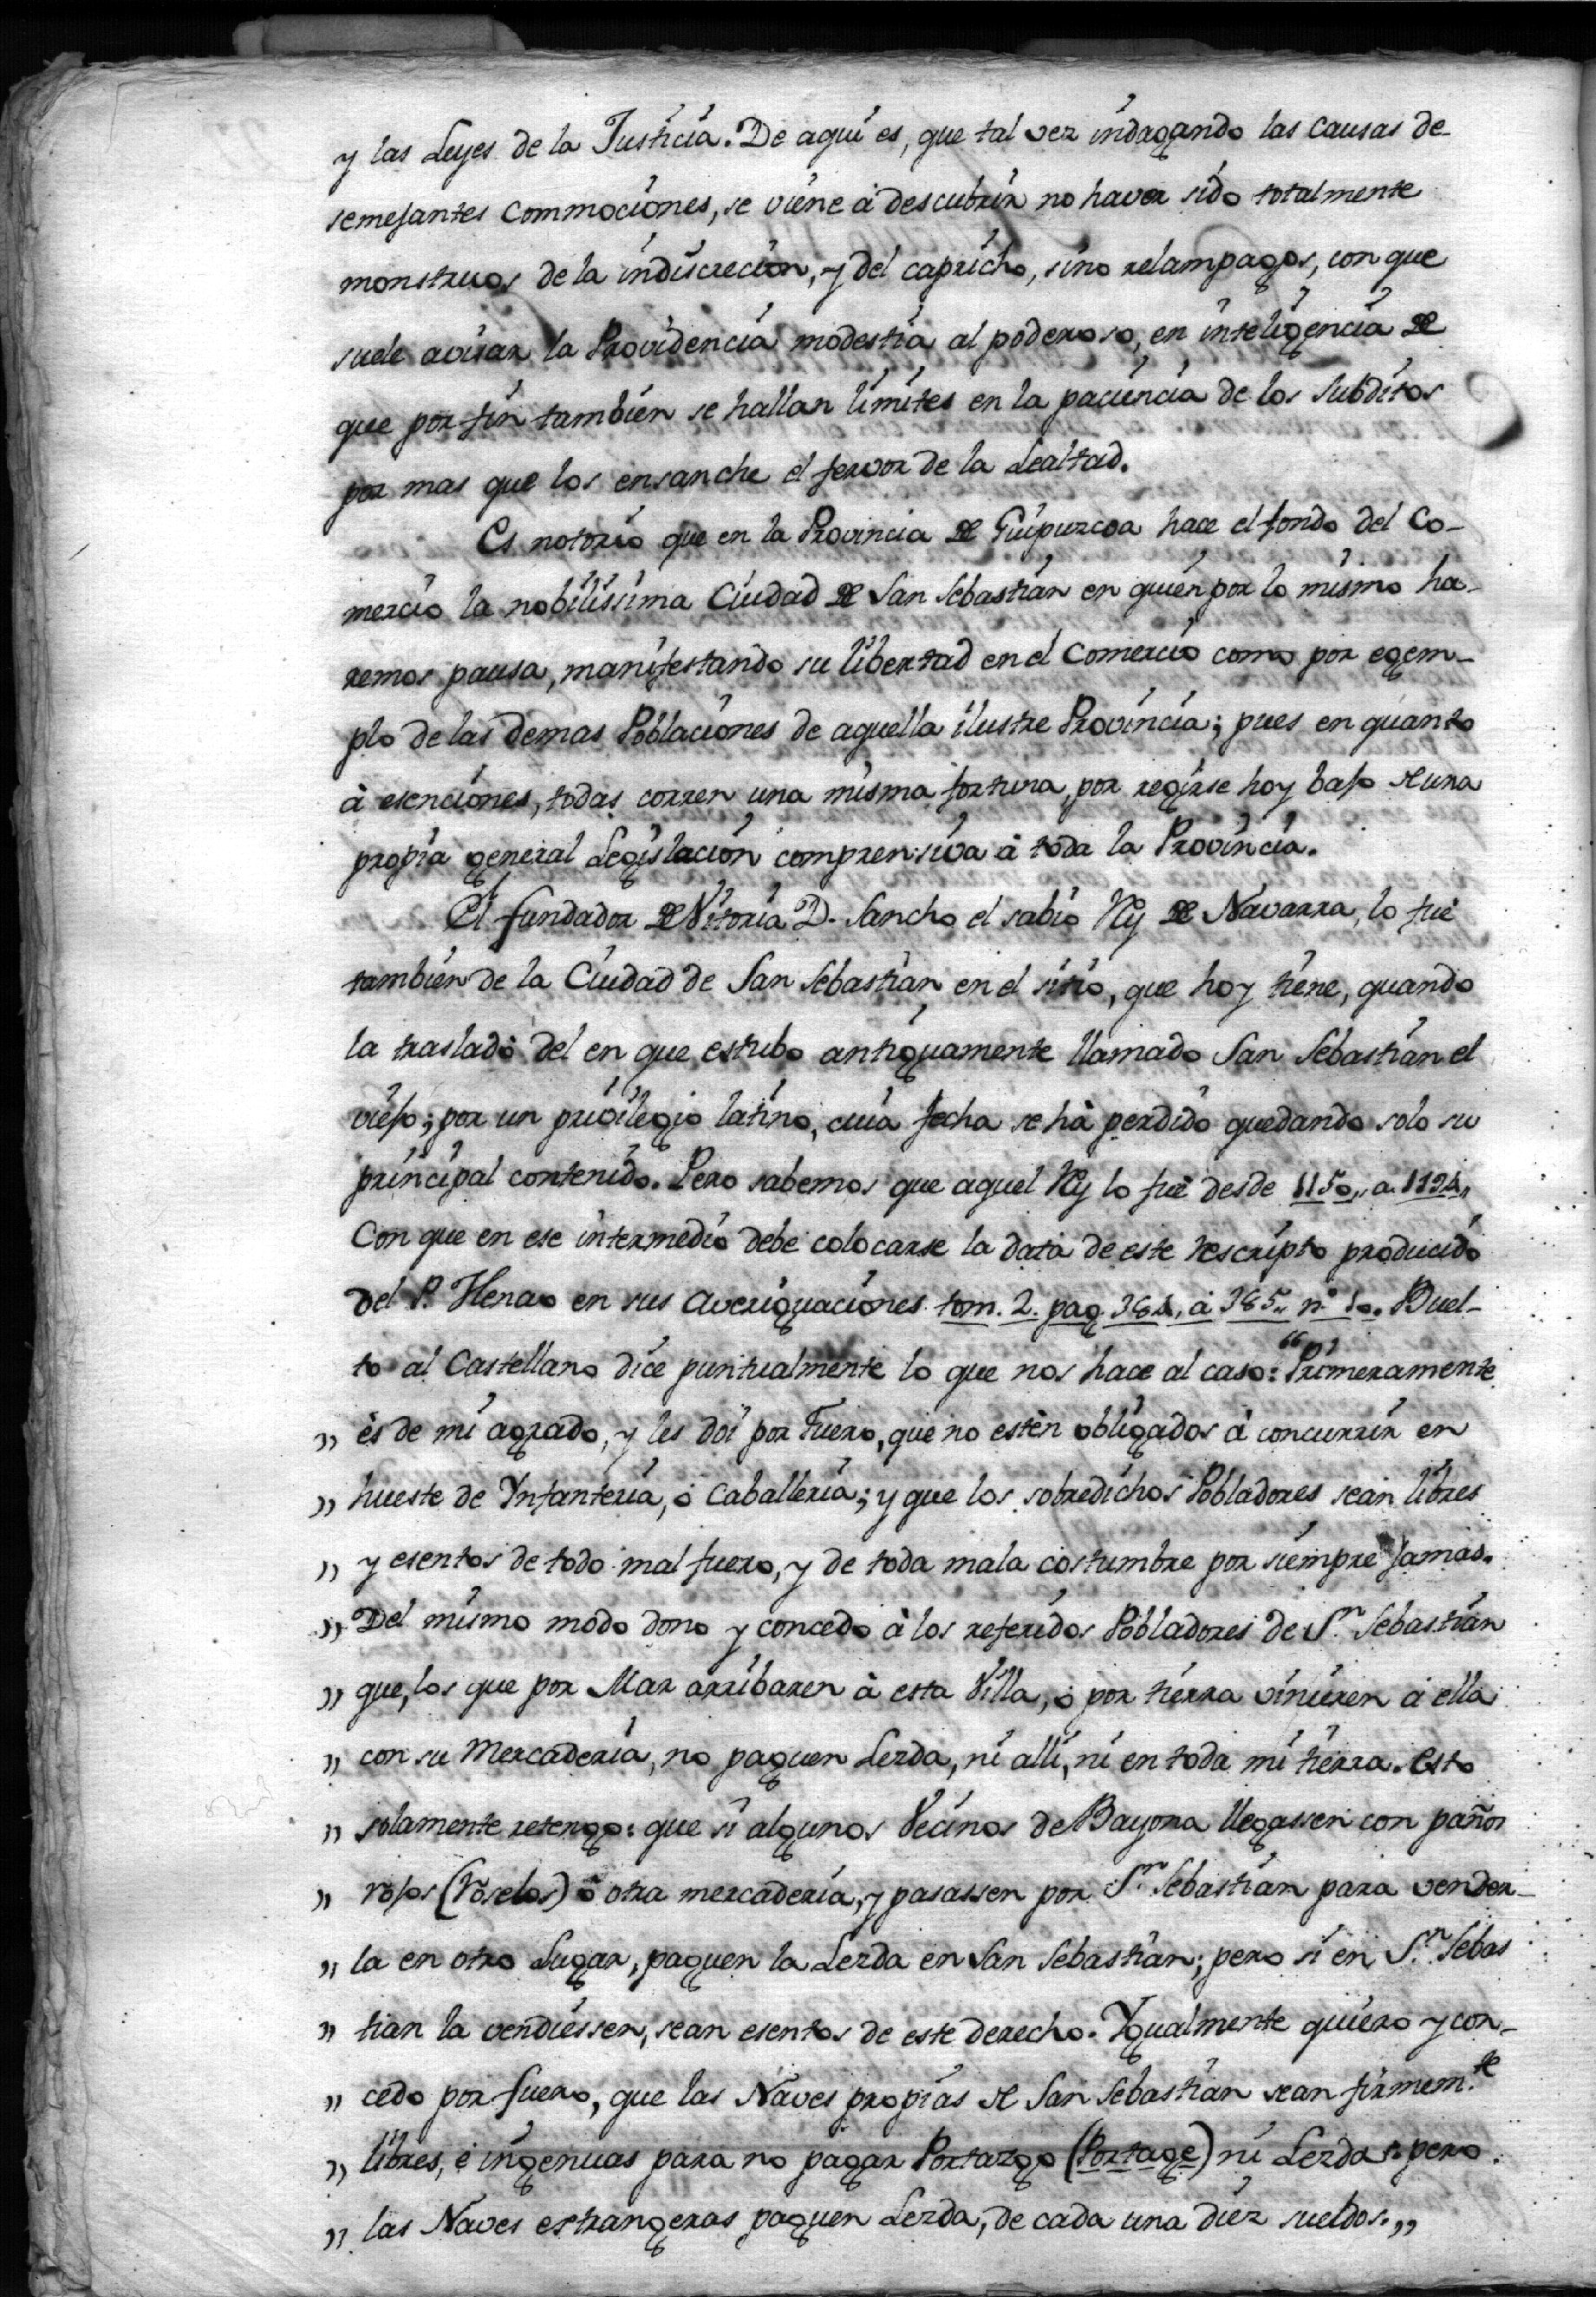 y las Leyes de la Justicia. De aqui es, que tal vez indagando las causas de
semejantes commociones, se viene à descubrir no haver sido totalmente
monstruos de la indiscrecion, y del capricho, sino relampagos, con que
suele avisar la Providencia modestia al poderoso, en inteligencia de
que por fin tambien se hallan limites en la paciencia de los subditos
por mas que los ensanche el fervor de la Lealtad.
Es notorio que en la Provincia de Guipuzcoa hace el fondo del Co-
mercio la nobilissima Ciudad de San Sebastian en quien por lo mismo ha-
remos pausa, manifestando su libertad en el Comercio como por egem-
plo de las demas Poblaciones de aquella ilustre Provincia; pues en quanto
à esenciones, todas corren una misma fortuna, por regirse hoy bajo de una
propia general Legislacion comprensiva à toda la Provincia.
El fundador de Vitoria D. Sancho el sabio Rey de Navarra, lo fuè
tambien de la Ciudad de San Sebastian en el sitio, que hoy tiene, quando
la trasladò del en que estubo antiguamente llamado San Sebastian el
viejo; por un privilegio latino, cuia fecha se hà perdido quedando solo su
principal contenido. Pero sabemos que aquel Rey lo fuè desde 1150,, a 1194,,
Con que en ese intermedio debe colocarse la data de este rescripto producido
del P. Henao en sus Averiguaciones tom. 2. pag. 364, à 365,, nº 10. Buel-
to al Castellano dice puntualmente lo que nos hace al caso: “Primeramente
,, ès de mi agrado, y les doi por Fuero, que no estèn obligados à concurrir en
,, hueste de Ynfanteria, ò Caballeria; y que los sobredichos Pobladores sean libres
,, y esentos de todo mal fuero, y de toda mala costumbre por siempre jamas.
,, Del mismo modo dono y concedo à los referidos Pobladores de S.n Sebastian
,, que, los que por Mar arribaren à esta Villa, ò por tierra vinieren à ella
,, con su Mercaderia, no paguen Lezda, ni alli, ni en toda mi tierra. Esto
,, solamente retengo: que si algunos Vecinos de Bayona llegassen con paños
,, rojos (roselos) ò otra mercaderia, y pasassen por S.n Sebastian para vender-
,, la en otro Lugar, paguen la Lezda en San Sebastian; pero si en S.n Sebas
,, tian la vendiessen, sean esentos de este derecho. Ygualmente quiero y con-
,, cedo por fuero, que las Naves propias de San Sebastian sean firmem.te
,, libres, è ingenuas para no pagar Portazgo (Portage) ni Lezda: pero
,, las Naves estrangeras paguen Lezda, de cada una diez sueldos.,,